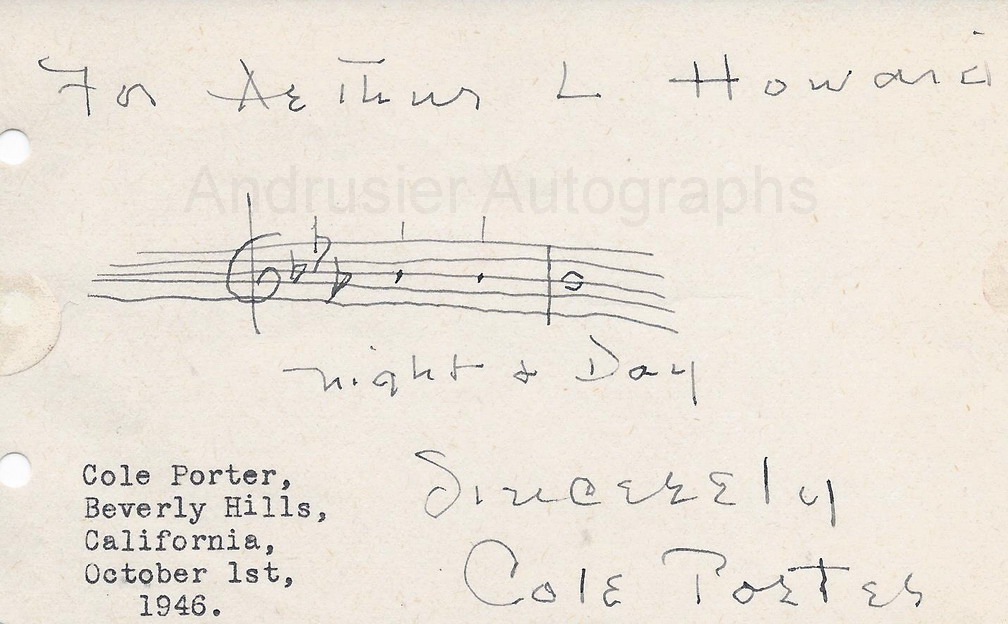 For Arthur L Howard
Andrusier Autographs
night & Day
Sincerely
Cole Porter
Cole Porter,
Beverly Hills,
California,
October 1st,
1946.